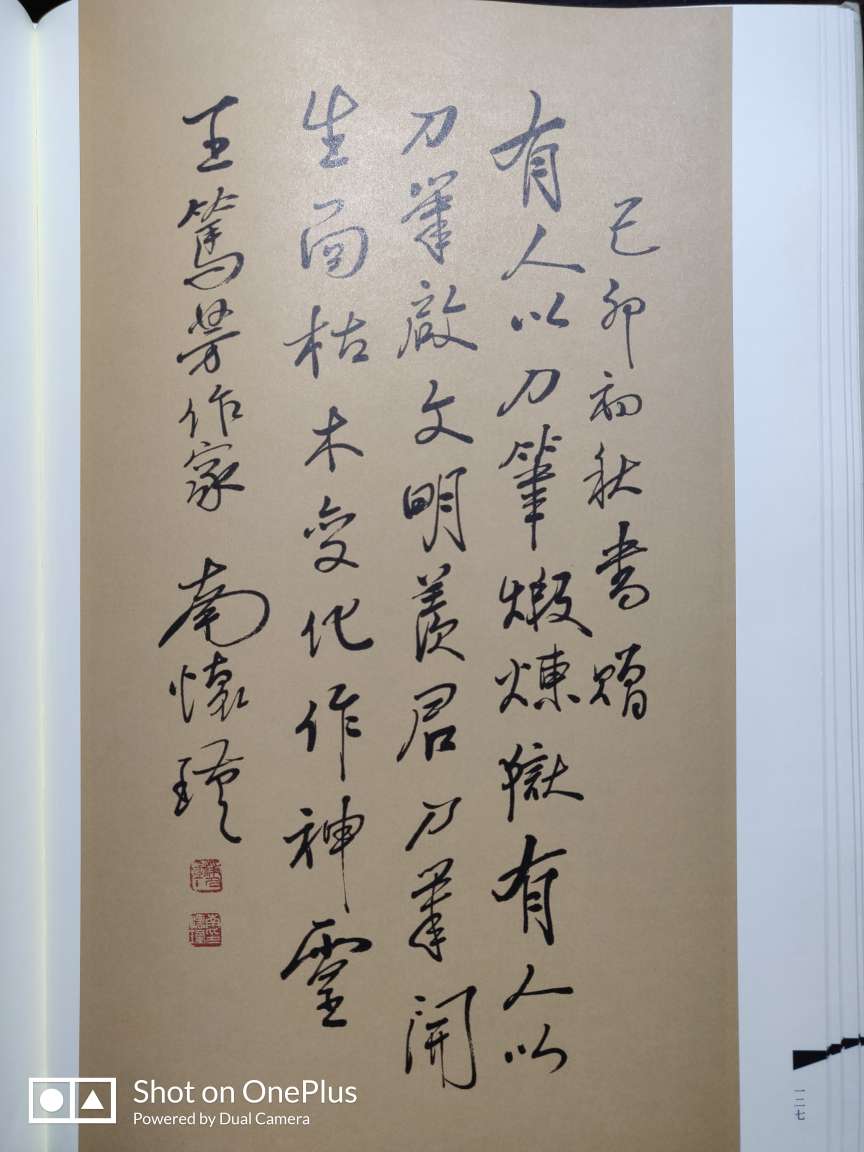 己卯初秋書贈
有人以刀筆煅煉獄有人以
刀筆啟文明羨君刀筆開
生面枯木变化作神靈
王篤芳作家 南懷瑾
一二七
Shot on OnePlus
Powered by Dual Camera